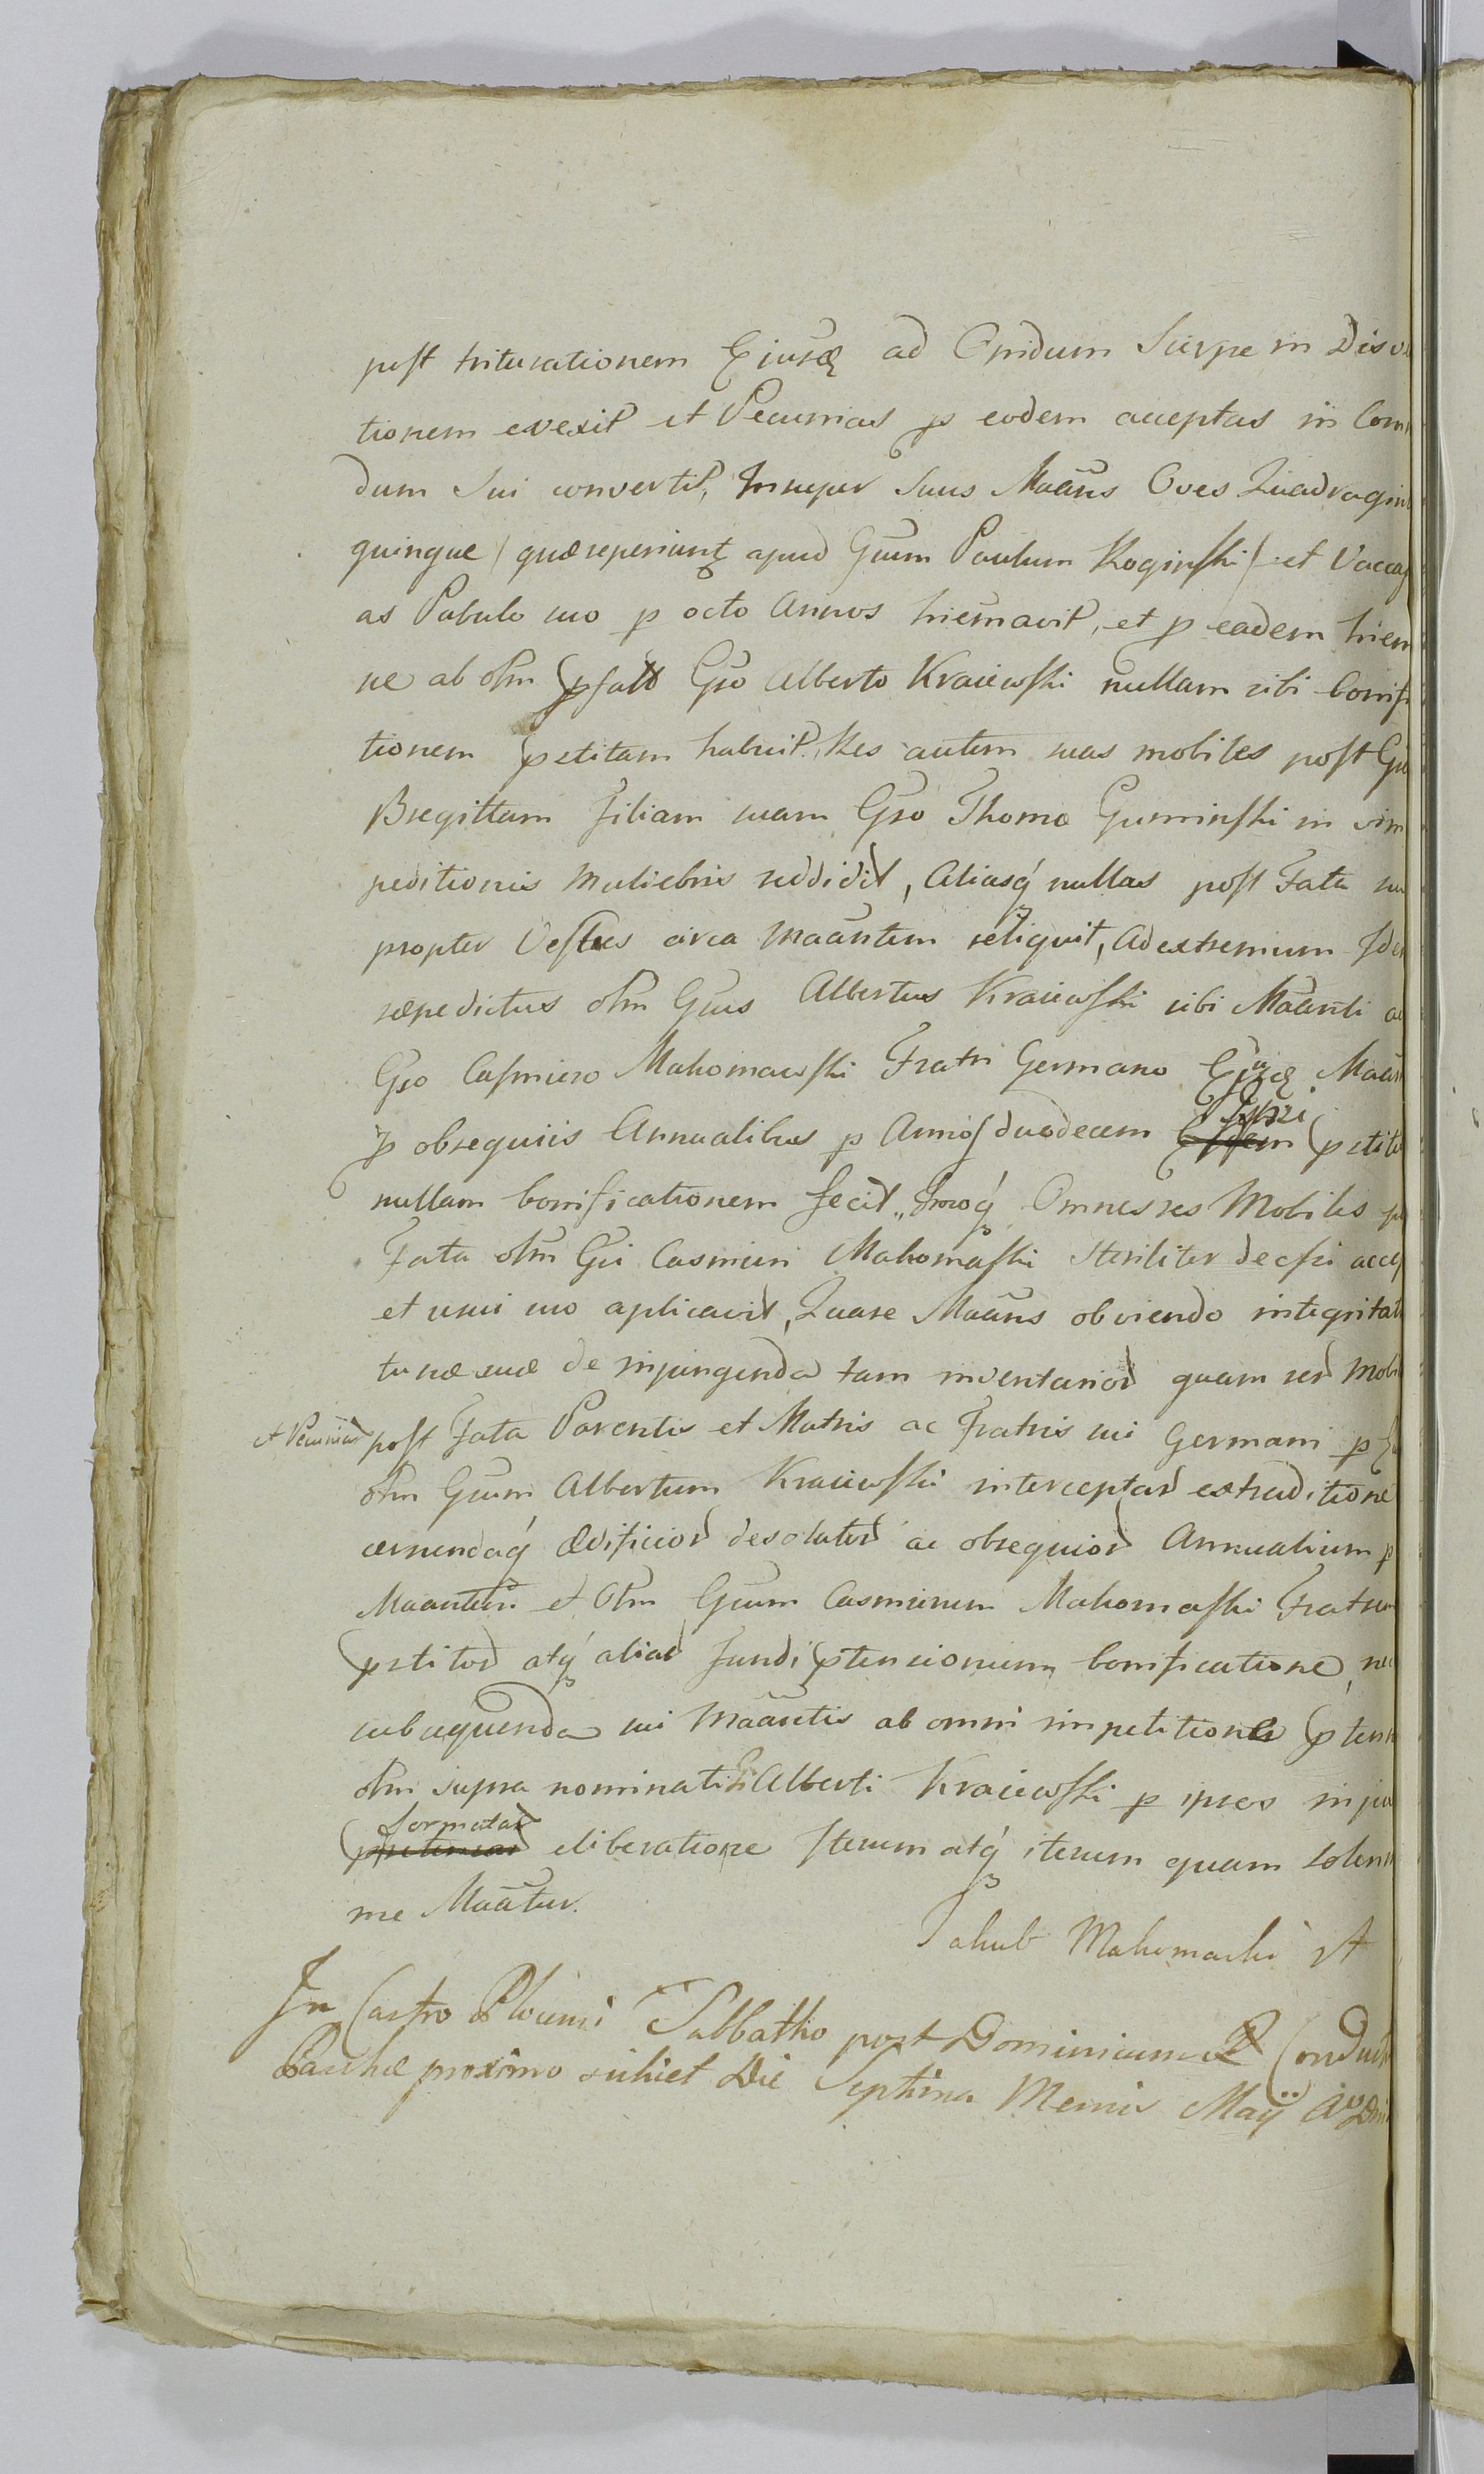 post triturationem Ejusd ad Opidum Sierpe in Diso
tionem evexit et Pecunias p eodem acceptas in Com
dum Sui convertit, Insuper Suus Maãns Oves Quadragin
quinque / quæ reperiunt apud Gũm Paulum Roginski / et Vacca
as Pabulo suo p octo Annos hiemavit, et p eadem hiem
ne ab olm pfato Gso Alberto Kraiewski nullam sibi bonifi
tionem petitam habuit. Res autem suas mobiles post G
Bregittam Filiam suam Gso Thomæ Guminski in vim
peditionis muliebris reddidit, Aliasq nullas post Fata su
propter Vestes circa Maãntem reliquit, Ad extremum Ide
sæpedictus olm Gũs Albertus Kraiewski sibi Maãnti a
Gso Casmiro Makomawski Fratri Germano Ejusd Maãn
p obsequiis Annualibus p Annos duodecem Ipsi pstit
nullam bonificationem fecit, Imoq Omnes res Mobiles p
Fata olm Gũi Casmiri Makomaski Steriliter decssi acce
et usui suo aplicavit, Quare Maãns obviendo integritat
tunæ suæ de injungenda tam inventarior quam rer mobi
et Pecuniar post Fata Parentis et Matris ac Fratris sui Germani p
olm Gũm Albertum Kraiewski interceptar extraditione
cernendaq Ædificior desolator ac obsequior Annualium p
Maantem et Olm Gũm Casmirum Makomaski Fratrem
pstitor atq aliar fundi ptensionum bonificatione, ne
subsequenda sui Maãntis ab omni impetitione ptens
olm supra nominati G Alberti Kraiewski p ipsos inju
formatar eliberatione Iterum atq iterum quam solenn
me Maãtur.
Jakub Makomaski
In Castro Plocensi Sabbatho post Dominicam Conduct
Paschæ proximo scilicet Die Septima Mensis Maÿ Aº Dni